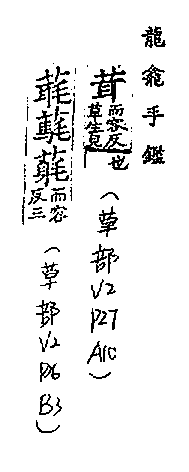 龍龕手鑑
茸而容反草生皃也(草部V2P27A10)
而容反三(草部V2P26B3)